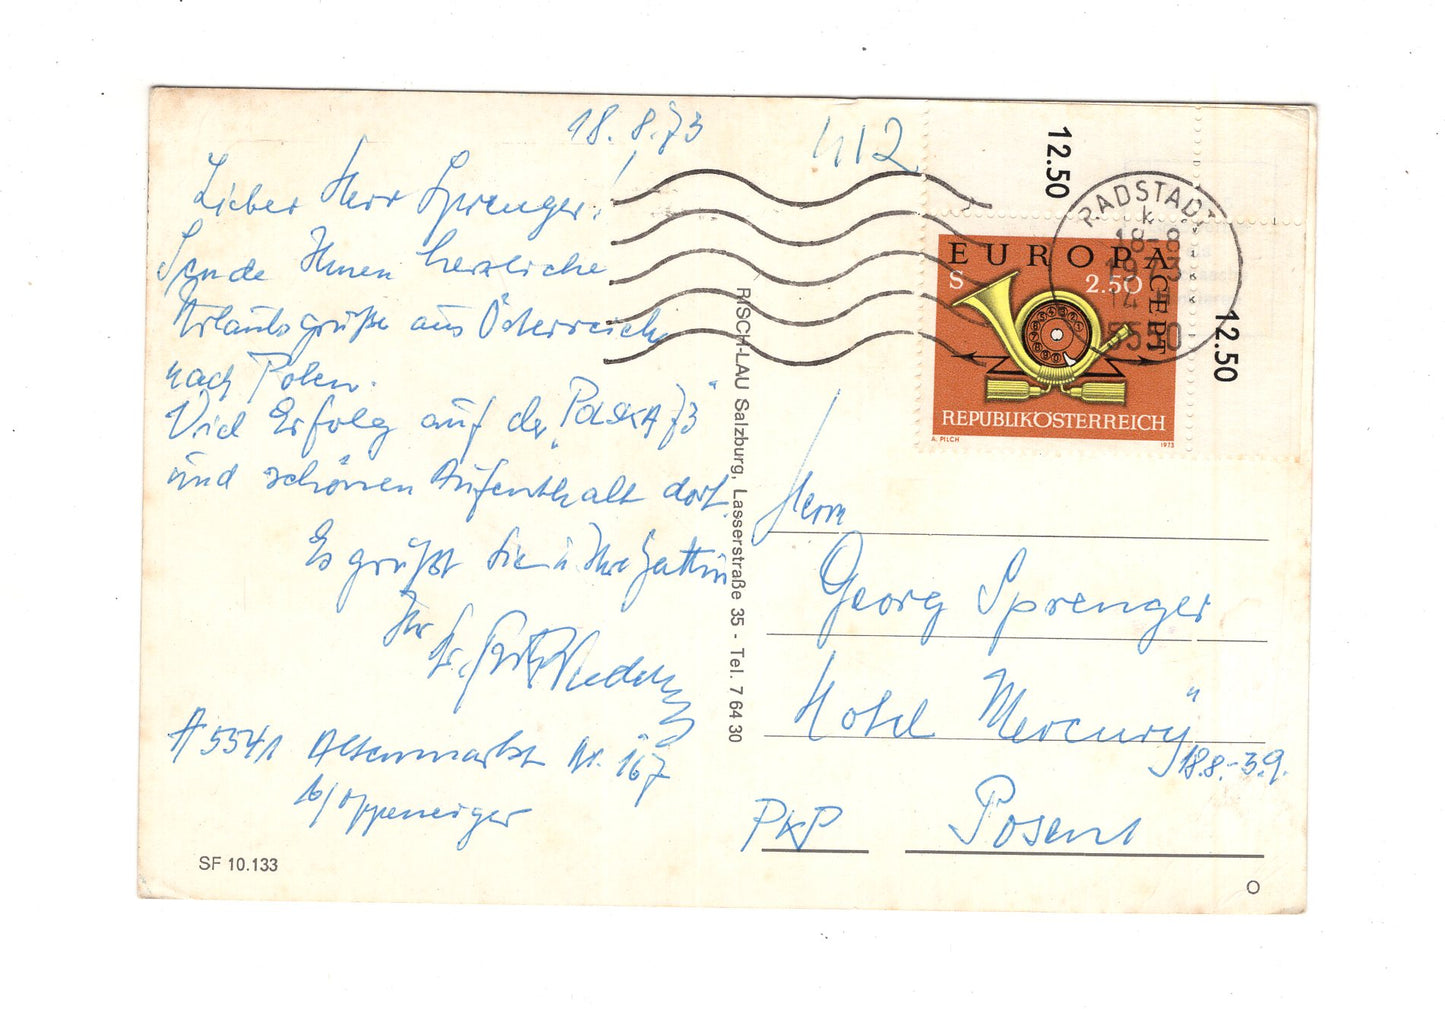 18.8.73
412
Lieber Herr Sprenger!
Sende Ihnen herzliche
Urlaubsgrüße aus Österreich
nach Polen.
Viel Erfolg auf der 73"
und schönen Aufenthalt dort.
Es grüßt Sie u Ihre Gattin
Ihr
A 5541 Altenmarkt Nr. 167
b/Oppeneiger
SF 10.133
RISCH-LAU Salzburg, Lasserstraße 35 - Tel. 7 64 30
12.50
12.50
RADSTADT
k
18-8
1973
14
5550
EUROPA CEPT
S 2.50
REPUBLIK ÖSTERREICH
A. PILCH 1973
Herrn
Georg Sprenger
Hotel Mercury"
18.8.-3.9.
Posen
O